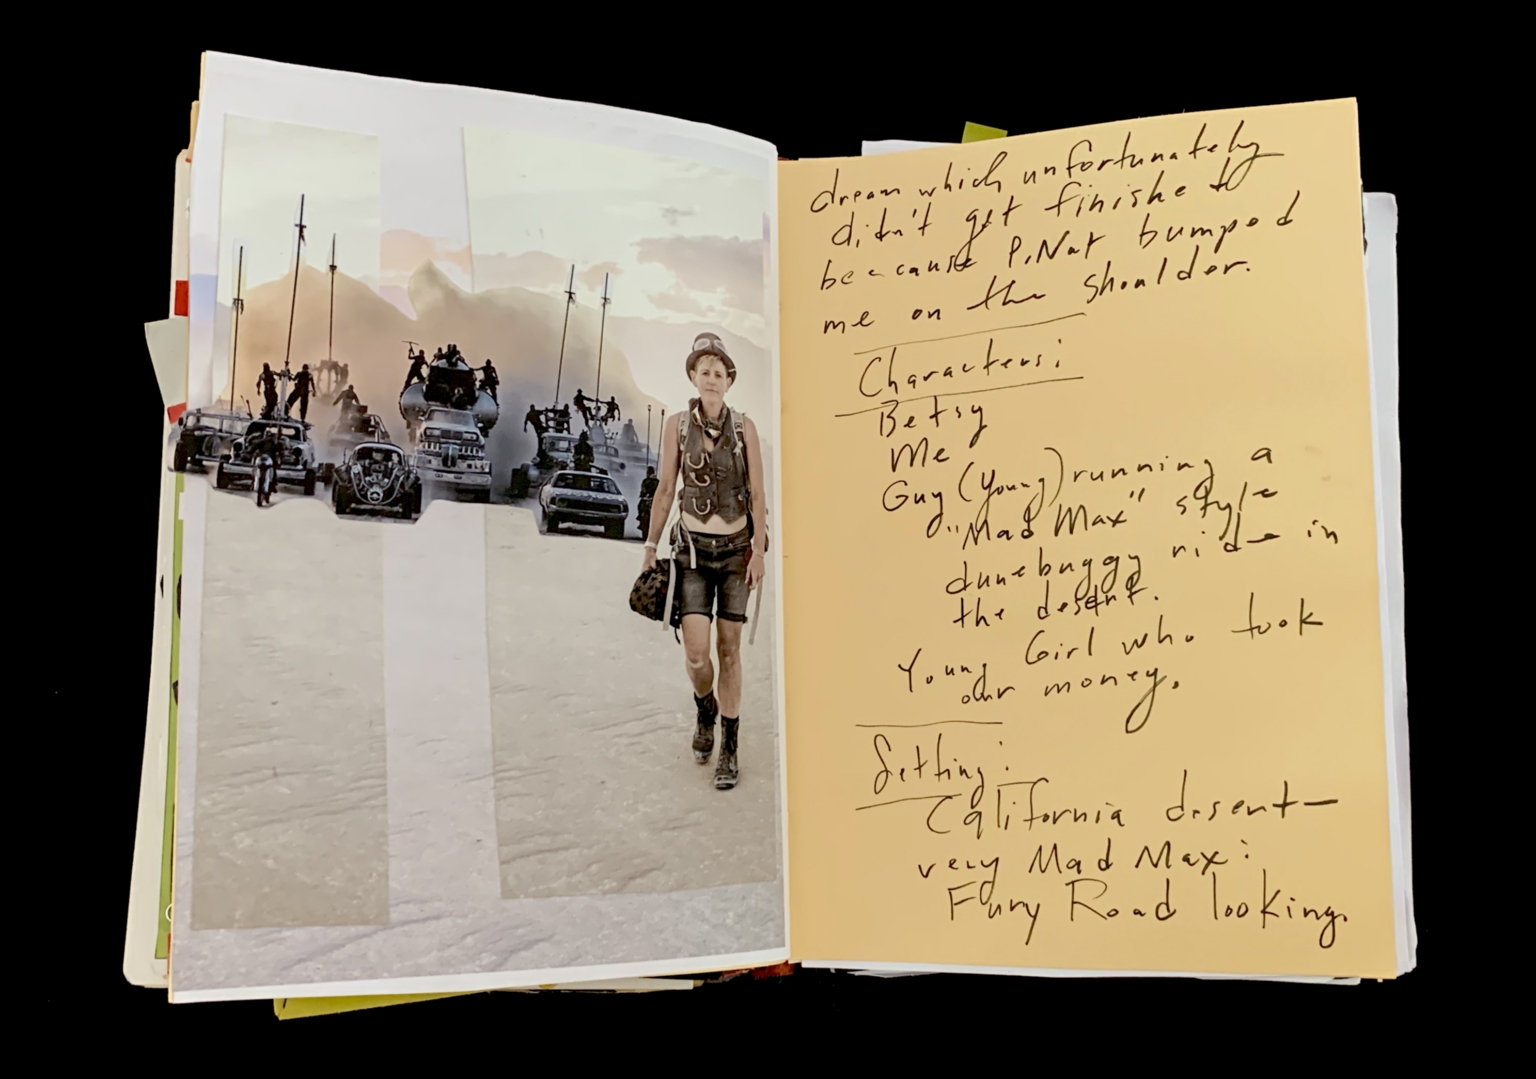 dream which unfortunately
didn't get finished
because P.Nat bumped
me on the shoulder.
Characters:
Betsy
Me
Guy (young) running a
"Mad Max" style
dunebuggy ride in
the desert.
Young Girl who took
our money.
Setting:
California desert-
very Mad Max:
Fury Road looking.